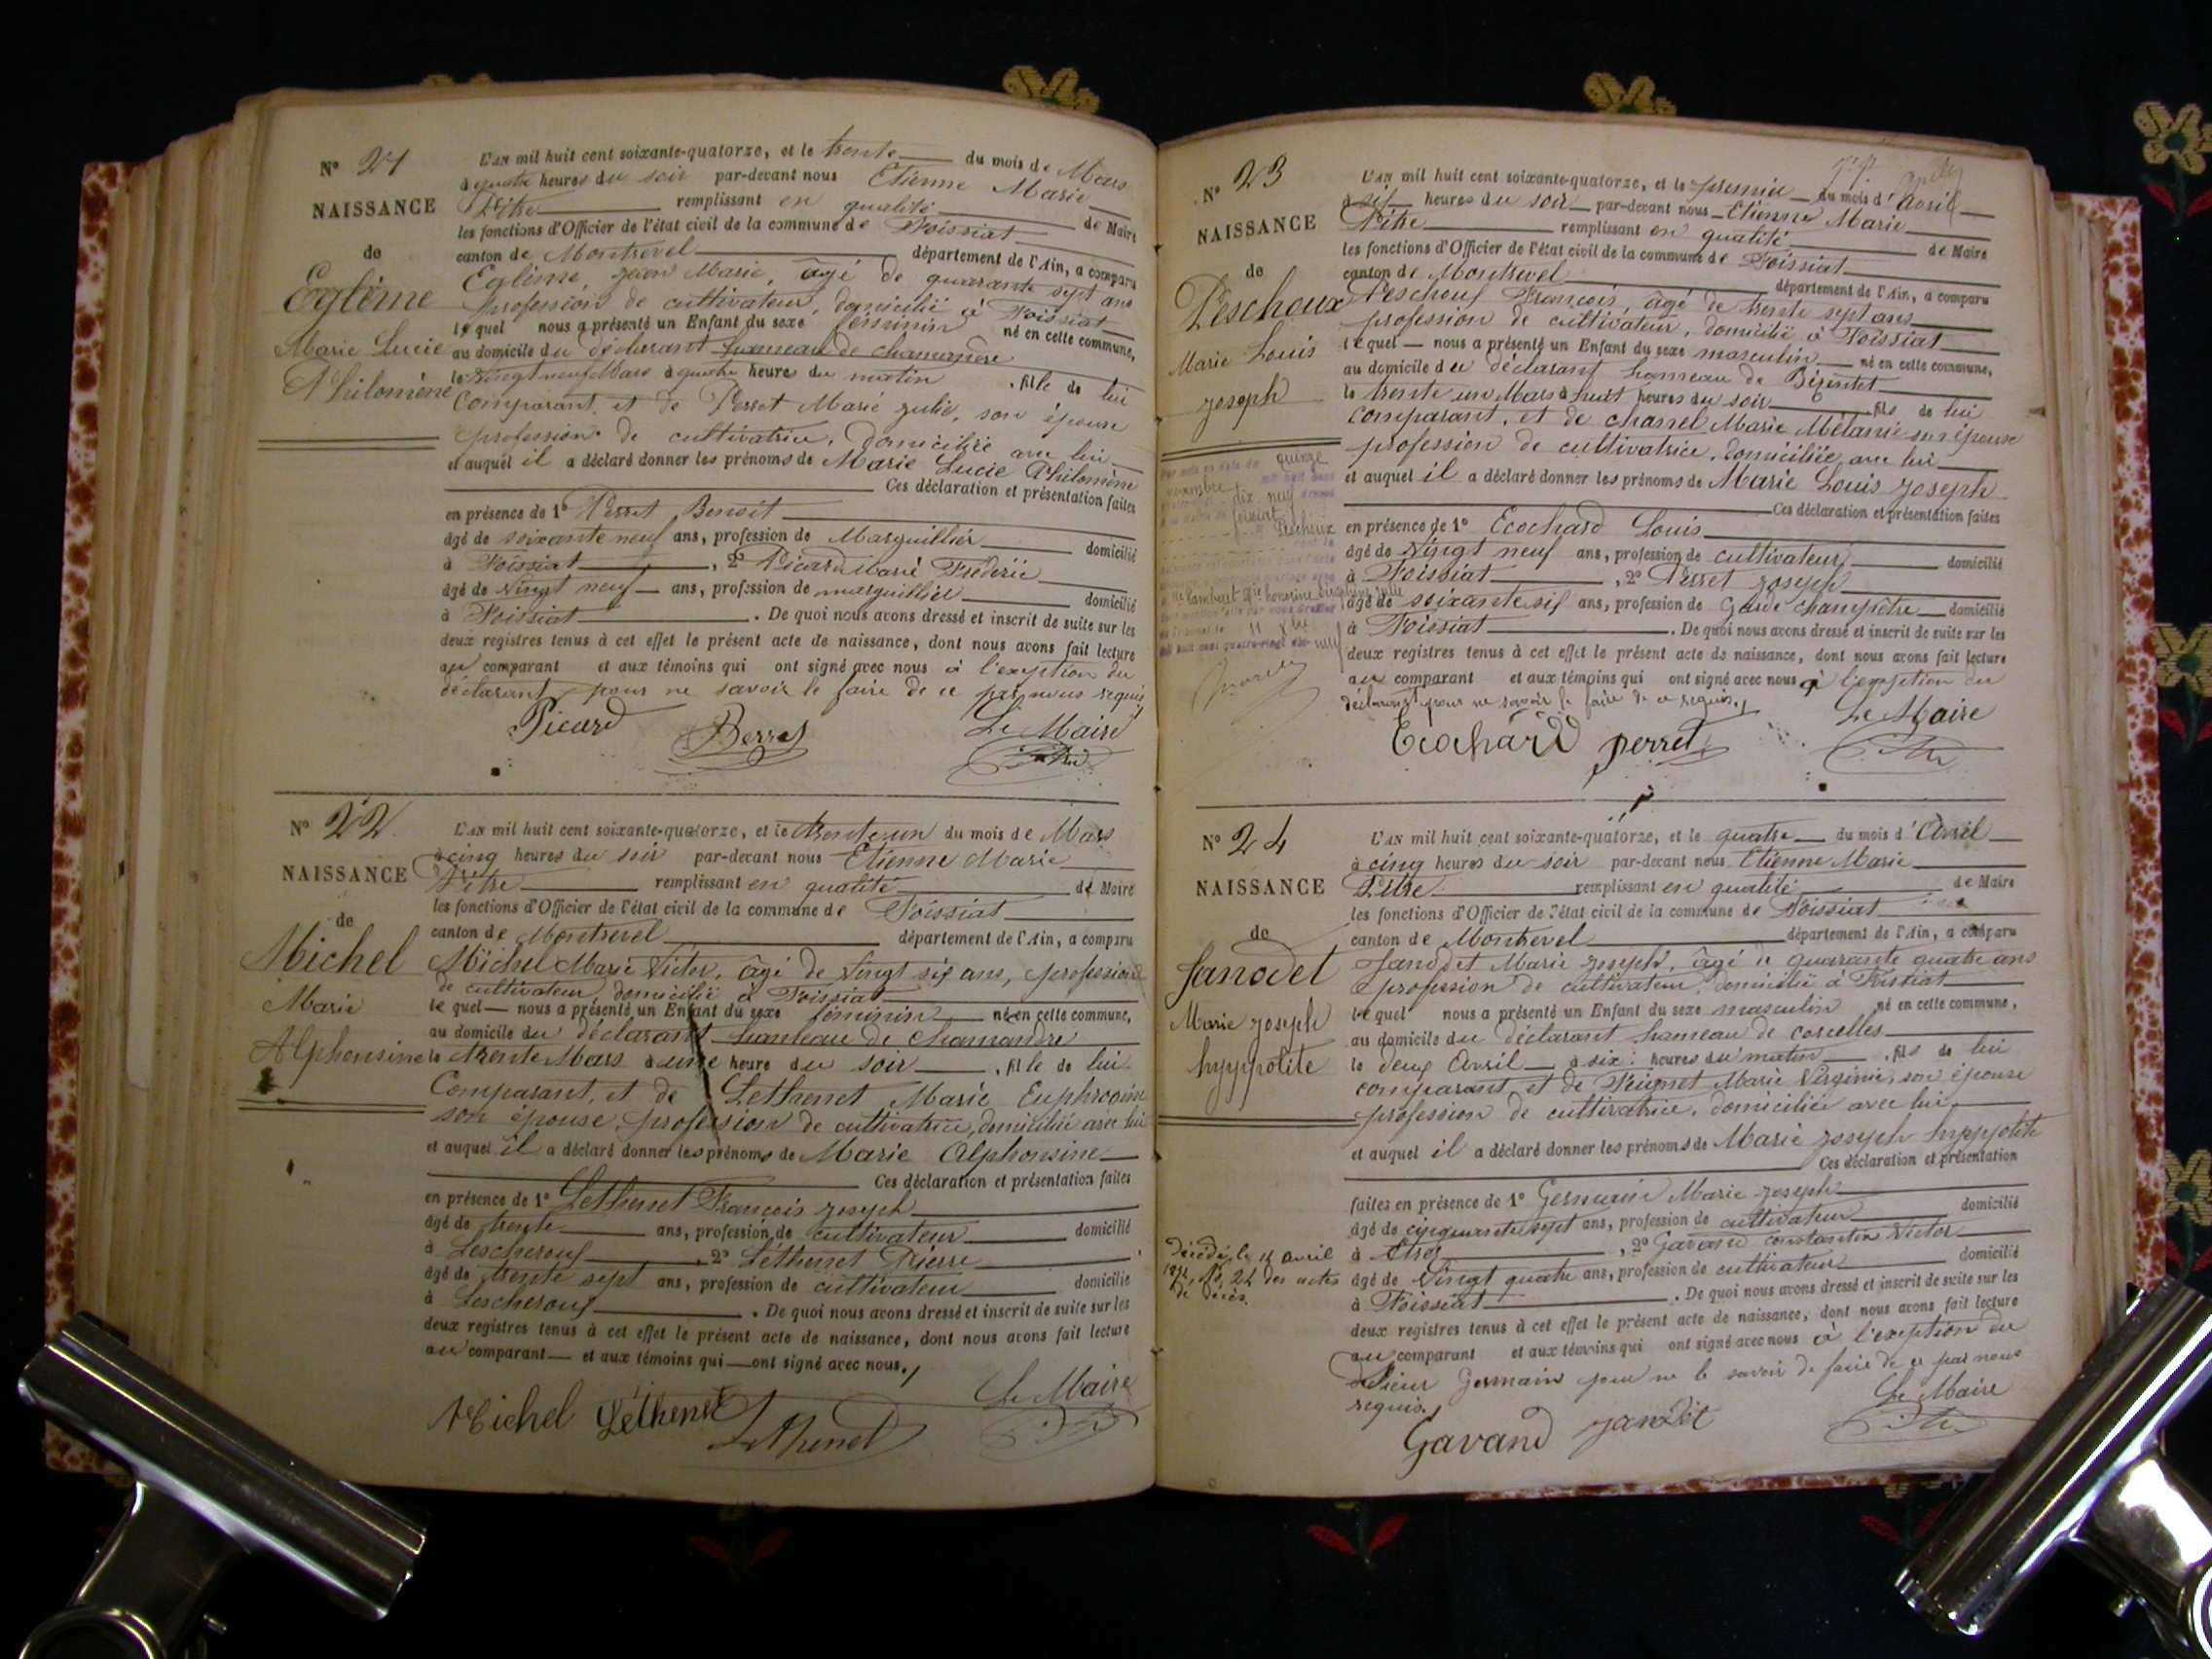 N° 21
NAISSANCE
de
Eglème
Marie Lucie
Philomène
L'AN mil huit cent soixante-quatorze, et le trente du mois de Mars
à quatre heures du soir par-devant nous Etienne Marie
Pitre remplissant en qualité de Maire
les fonctions d'Officier de l'état civil de la commune de Foissiat
canton de Montrevel département de l'Ain, a comparu
Eglème, Jean Marie, âgé de quarante sept ans
profession de cultivateur, domicilié à Foissiat
lequel nous a présenté un Enfant du sexe féminin né en cette commune,
au domicile du déclarant hameau de
le vingt neuf Mars à quatre heures du matin , fille de lui
Comparant, et de Perret Marie Julie, son épouse
profession de cultivatrice, domiciliée avec lui
et auquel il a déclaré donner les prénoms de Marie Lucie Philomène
Ces déclaration et présentation faites
en présence de 1° Perret Benoit
âgé de soixante neuf ans, profession de Marguillier domicilié
à Foissiat , 2° Picard Marie Frédéric
âgé de vingt neuf ans, profession de marguillier domicilié
à Foissiat . De quoi nous avons dressé et inscrit de suite sur les
deux registres tenus à cet effet le présent acte de naissance, dont nous avons fait lecture
au comparant et aux témoins qui ont signé avec nous à l'exeption du
déclarant pour ne savoir le faire de ce par nous requis
Picard Perret Le Maire
N° 22
NAISSANCE
de
Michel
Marie
Alphonsine
L'AN mil huit cent soixante-quatorze, et le trente un du mois de Mars
à cinq heures du soir par-devant nous Etienne Marie
Pitre remplissant en qualité de Maire
les fonctions d'Officier de l'état civil de la commune de Foissiat
canton de Montrevel département de l'Ain, a comparu
Michel Marie Victor, âgé de vingt six ans, profession
de cultivateur, domicilié à Foissiat
lequel nous a présenté un Enfant du sexe féminin né en cette commune,
au domicile du déclarant hameau de Chamandre
le trente Mars à une heure du soir , fille de lui
Comparant, et de Lethenet Marie Euphrosine
son épouse, profession de cultivatrice, domiciliée avec lui
et auquel il a déclaré donner les prénoms de Marie Alphonsine
Ces déclaration et présentation faites
en présence de 1° Lethenet François Joseph
âgé de trente ans, profession de cultivateur domicilié
à Lescheroux , 2° Léthenet Pierre
âgé de trente sept ans, profession de cultivateur domicilié
à Lescheroux . De quoi nous avons dressé et inscrit de suite sur les
deux registres tenus à cet effet le présent acte de naissance, dont nous avons fait lecture
au comparant et aux témoins qui ont signé avec nous.
Michel Léthenet Lethenet Le Maire
N° 23
NAISSANCE
de
Peschoux
Marie Louis
Joseph
quinze
novembre
dix neuf
foissiat
Peschoux
L'AN mil huit cent soixante-quatorze, et le premier du mois d'Avril
à six heures du soir par-devant nous Etienne Marie
Pitre remplissant en qualité de Maire
les fonctions d'Officier de l'état civil de la commune de Foissiat
canton de Montrevel département de l'Ain, a comparu
Peschoux François, âgé de trente sept ans
profession de cultivateur, domicilié à Foissiat
lequel nous a présenté un Enfant du sexe masculin né en cette commune,
au domicile du déclarant hameau de
le trente un Mars à huit heures du soir , fils de lui
comparant, et de Charnel Marie Mélanie son épouse
profession de cultivatrice, domiciliée avec lui
et auquel il a déclaré donner les prénoms de Marie Louis Joseph
Ces déclaration et présentation faites
en présence de 1° Ecochard Louis
âgé de vingt neuf ans, profession de cultivateur domicilié
à Foissiat , 2° Perret Joseph
âgé de soixante six ans, profession de Garde champêtre domicilié
à Foissiat . De quoi nous avons dressé et inscrit de suite sur les
deux registres tenus à cet effet le présent acte de naissance, dont nous avons fait lecture
au comparant et aux témoins qui ont signé avec nous à l'exeption du
déclarant pour ne savoir le faire de ce requis.
Ecochard perret Le Maire
N° 24
NAISSANCE
de
Janodet
Marie Joseph
hyppolite
Décédé le 14 avril
N° 24 des actes
de décès.
L'AN mil huit cent soixante-quatorze, et le quatre du mois d'Avril
à cinq heures du soir par-devant nous Etienne Marie
Pitre remplissant en qualité de Maire
les fonctions d'Officier de l'état civil de la commune de Foissiat
canton de Montrevel département de l'Ain, a comparu
Janodet Marie Joseph, âgé de quarante quatre ans
profession de cultivateur, domicilié à Foissiat
lequel nous a présenté un Enfant du sexe masculin né en cette commune,
au domicile du déclarant hameau de corcelles
le deux Avril à six heures du matin , fils de lui
comparant, et de Peignet Marie Virginie, son épouse
profession de cultivatrice, domiciliée avec lui
et auquel il a déclaré donner les prénoms de Marie Joseph hyppolite
Ces déclaration et présentation
faites en présence de 1° Germain Marie Joseph
âgé de cinquante sept ans, profession de cultivateur domicilié
à Etrez , 2° Gavand constantin Victor
âgé de vingt quatre ans, profession de cultivateur domicilié
à Foissiat . De quoi nous avons dressé et inscrit de suite sur les
deux registres tenus à cet effet le présent acte de naissance, dont nous avons fait lecture
au comparant et aux témoins qui ont signé avec nous à l'exeption du
sieur Germain pour ne le savoir de faire de ce par nous
requis.
Gavand Janodet Le Maire